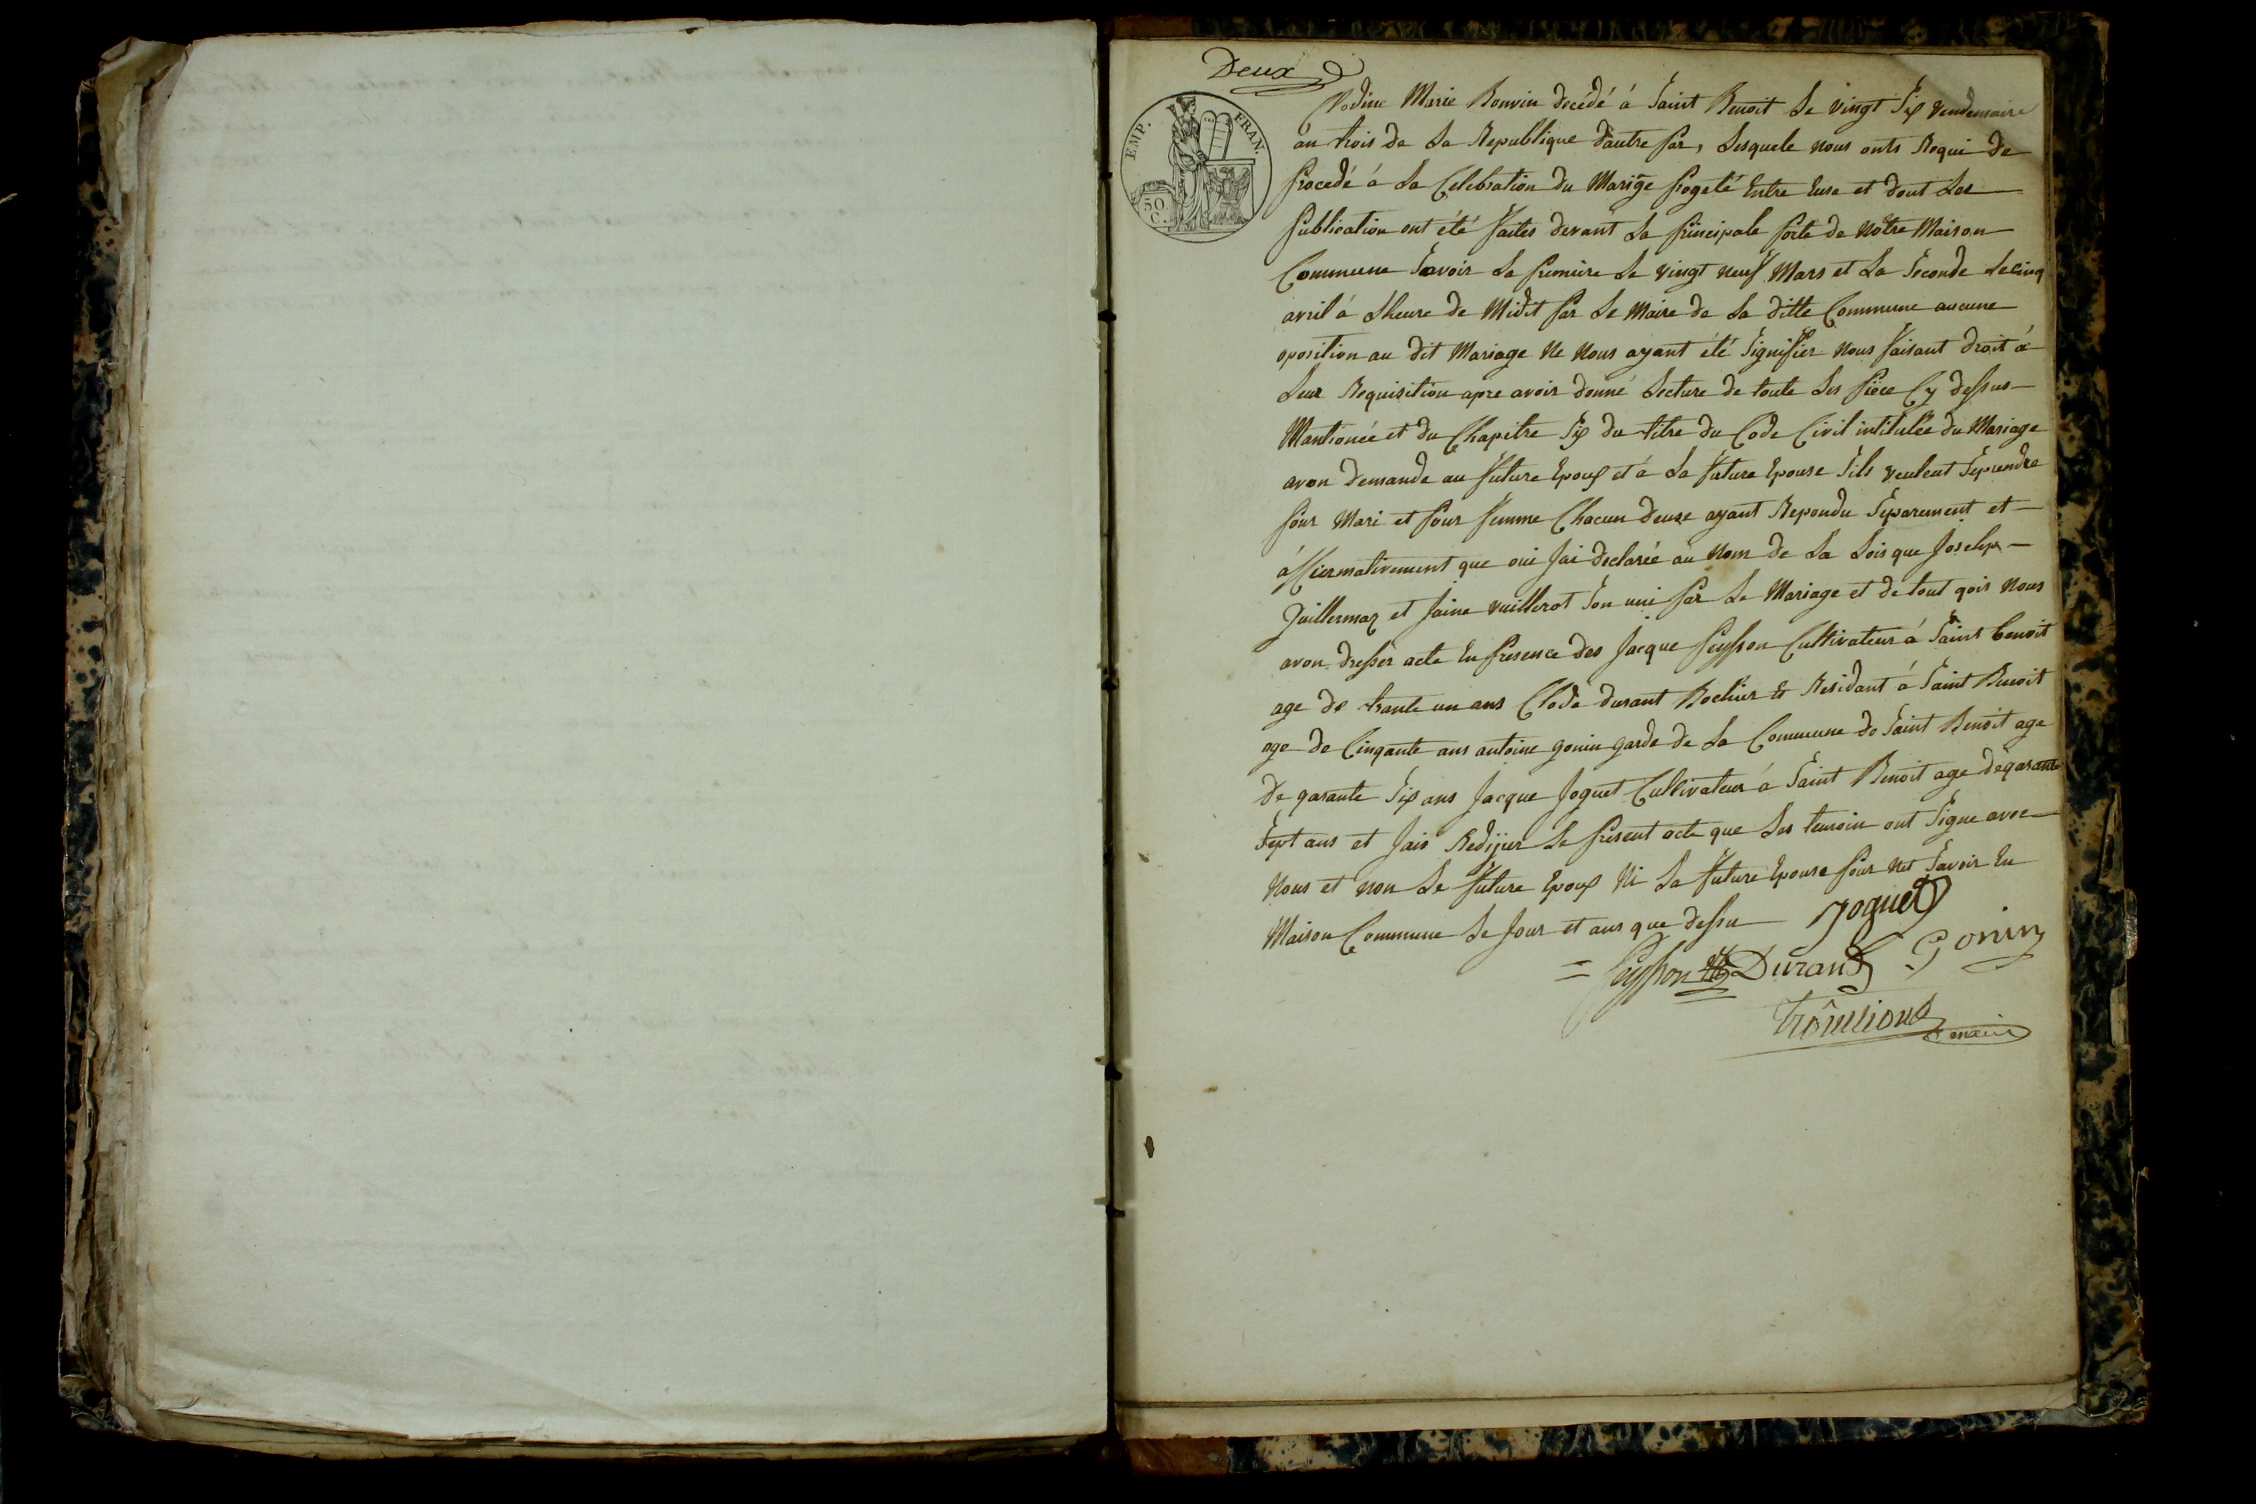 Deux
EMP. FRAN.
50 C.
Clodine Marie Bonvin decédé á Saint Benoit Le vingt Six vendemaire
an trois de La Republique dautre par, Lesquele nous onts Requi de
procedé á La Celebration du Marige progeté Entre Euse et dont Les
publication ont été faites devant La principale porte de Notre Maison
Commune Savoir La premiere Le vingt neuf Mars et La Seconde Le cinq
avril á Lheure de Midit par Le Maire de La ditte Commune aucune
oposition au dit Mariage Ne Nous ayant été Signifier Nous faisant droit á
Leur Requisition apre avoir donné Lecture de toute Les piéce Cy dessus
Mantionée et du Chapitre Six du titre du Code Civil intitulée du Mariage
avon demande au future Epoux et á La future Epouse Sils veulent Seprendre
pour Mari et pour femme Chacun deuse ayant Repondu Separement et
áffiermativement que oui Jai declarée au Nom de La Lois que Joselp
Juillermaz et Jaine vuillerot Son uni par Le Mariage et de tout qois Nous
avon dresser acte En presence des Jacque peysson Cultivateur á Saint benoit
age de trante un ans Clode durant Rochier Et Residant á Saint Benoit
age de Cinqante ans antoine gonin garde de La Commune de Saint Benoit age
de qarante Six ans Jacque Joguet Cultivateur á Saint Benoit age de qarante
Sept ans et Jais Redijier Le present acte que Les temoin ont Signe avec
Nous et non Le future Epoux Ni La future Epouse pour Net Savoir En
Maison Commune Le Jour et ans que dessu
Joguet
peysson Durand Gonin
maire